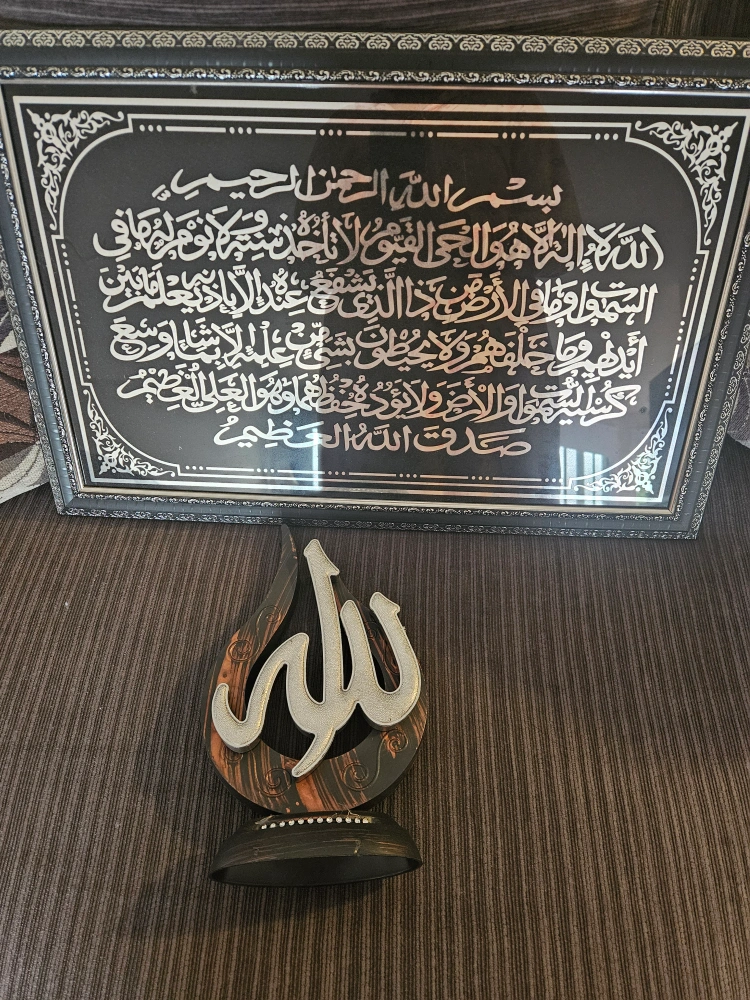 بسم الله الرحمن الرحيم
الله لا إله إلا هو الحي القيوم لا تأخذه سنة ولا نوم له ما في
السموات وما في الأرض من ذا الذي يشفع عنده إلا بإذنه يعلم ما بين
أيديهم وما خلفهم ولا يحيطون بشيء من علمه إلا بما شاء وسع
كرسيه السموات والأرض ولا يؤده حفظهما وهو العلي العظيم
صدق الله العظيم
الله